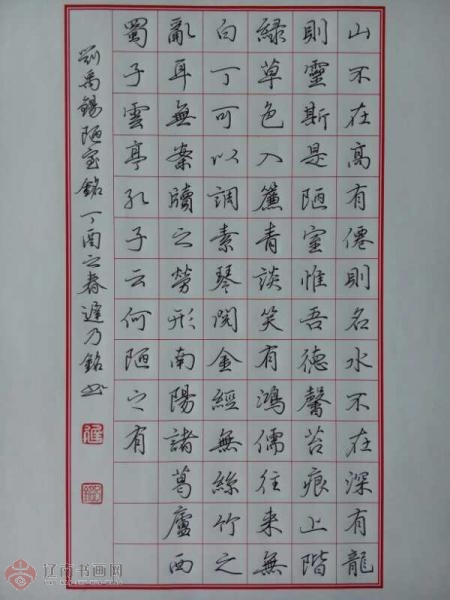 山不在高有僊則名水不在深有龍
則靈斯是陋室惟吾德馨苔痕上階
緑草色入簾青談笑有鴻儒往来無
白丁可以調素琴閱金經無絲竹之
亂耳無案牘之勞形南陽諸葛廬西
蜀子雲亭孔子云何陋之有
劉禹錫陋室銘丁酉之春遲乃銘书
辽南书画网